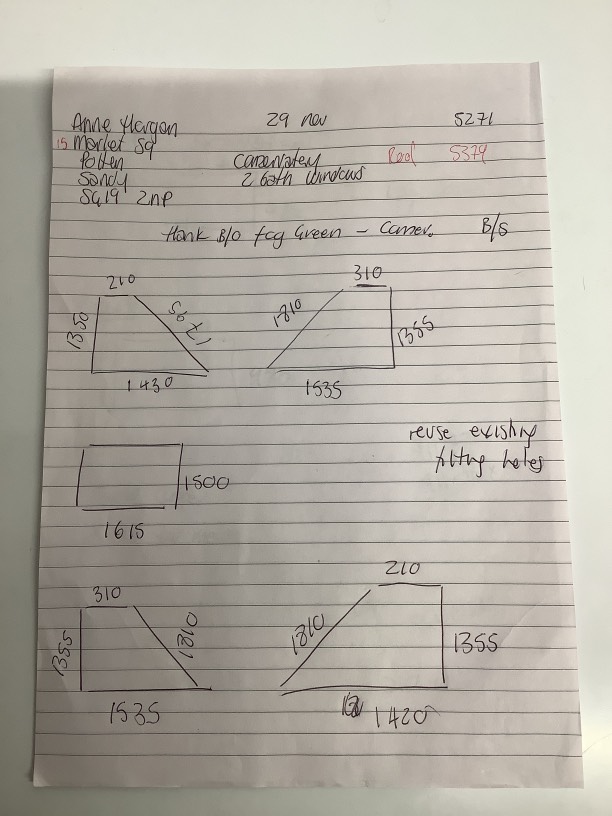 Anne Hargan 29 nov 5271
15 Market Sq
Potten Conservatory Red 5374
Sandy 2 bath windows
SG19 2NP
Hank B/O fcg Green - Conser. B/S
210 310
1350 1795 1810 1355
1430 1535
reuse existing
fitting holes
1500
1615
310 210
1355 1810 1810 1355
1535 1420